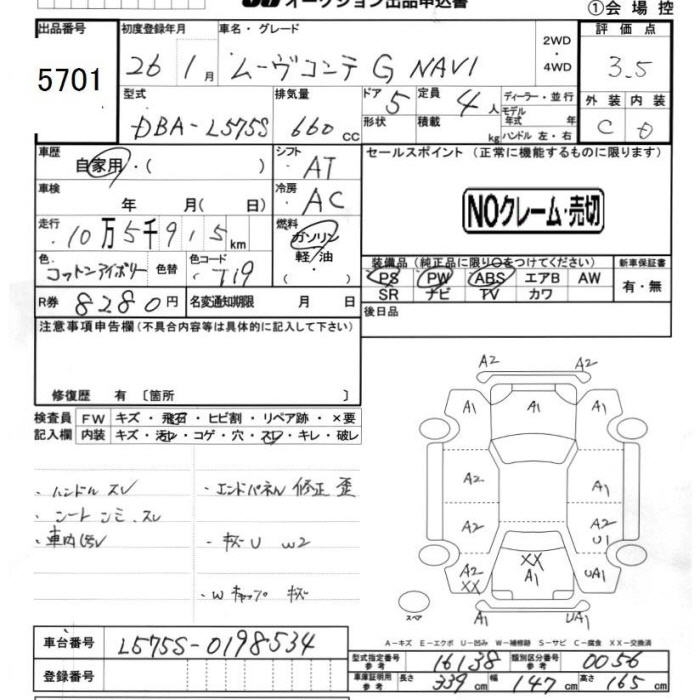 オークション出品申込書
①会場控
出品番号 初度登録年月 車名・グレード 評価点
5701 26 1月 ムーヴコンテ G NAVI 2WD・4WD 3.5
型式 排気量 ドア 定員 ディーラー・並行 外装 内装
DBA-L575S 660cc 5 4人 モデル年式 年 C D
形状 積載 kg ハンドル 左・右
車歴 シフト セールスポイント(正常に機能するものに限ります)
自家用・( ) AT
車検 冷房
年 月( 日) AC NOクレーム・売切
走行 燃料
10万5千915km ガソリン
軽油
色 色コード 装備品(純正品に限り○をつけてください) 新車保証書
コットンアイボリー 色替 T19 PS PW ABS エアB AW 有・無
SR ナビ TV カワ
R券 8280円 名変通知期限 月 日 後日品
注意事項申告欄(不具合内容等は具体的に記入して下さい)
修復歴 有 〔箇所 〕
検査員 FW キズ・飛石・ヒビ割・リペア跡・×要
記入欄 内装 キズ・汚レ・コゲ・穴・スレ・キレ・破レ
・ハンドル スレ ・エンドパネル 修正 歪
・シート シミ、スレ
・車内 ・キズ U W2
・Wキャップ キズ
A2 A2
A1 A1 A1
A2 A1
A2 A2 U1
A2 XX XX A1 UA1
スペア A1 UA1
A-キズ E-エクボ U-凹み W-補修跡 S-サビ C-腐食 XX-交換済
車台番号 L575S-0198534
型式指定番号 参考 16138 類別区分番号 参考 0056
登録番号
車庫証明用 参考 長さ 339cm 幅 147cm 高さ 165cm